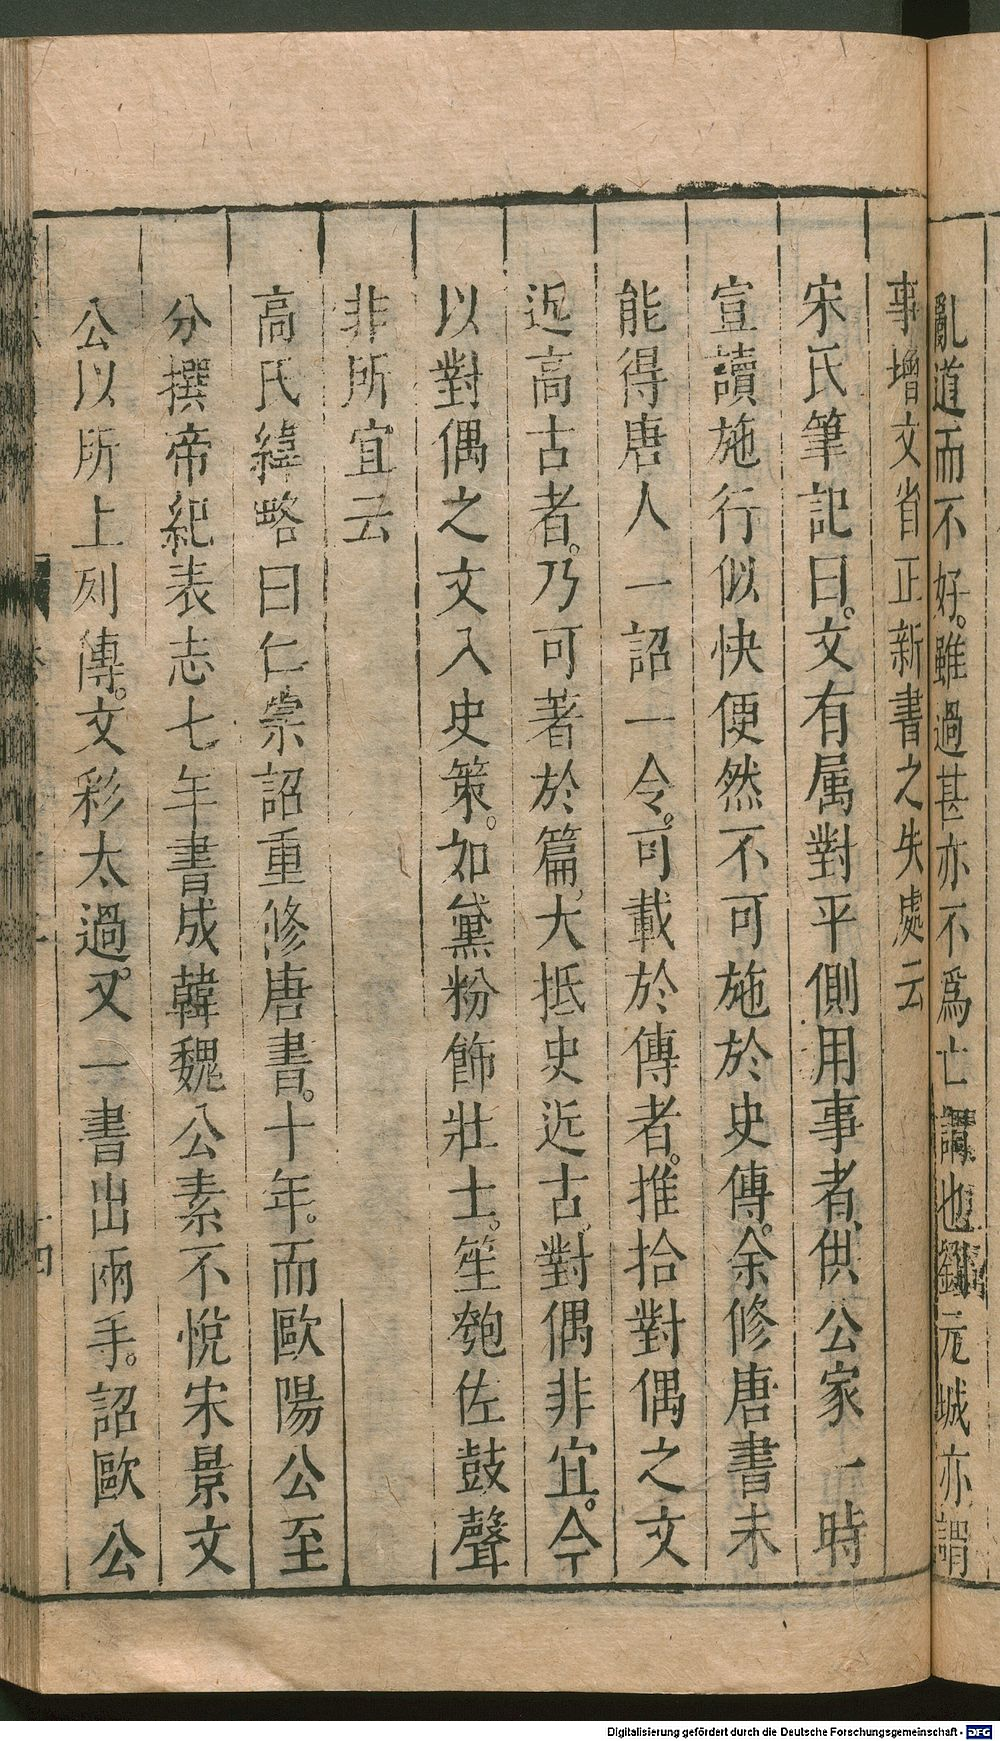 亂道而不好。雖過甚亦不爲亡謂也劉元城亦謂
事增文省正新書之失處云
宋氏筆記曰。文有属對平側用事者供公家一時
宣讀施行似快便然不可施於史傳。余修唐書未
能得唐人一詔一令。可載於傳者。推拾對偶之文
近高古者。乃可著於篇。大抵史近古。對偶非宜。今
以對偶之文入史策。如黛粉飾壯士。笙匏佐鼓聲
非所宜云
高氏緯略曰仁宗詔重修唐書。十年。而歐陽公至
分撰帝紀表志七年書成韓魏公素不悅宋景文
公以所上列傳。文彩太過。又一書出兩手。詔歐公
Digitalisierung gefördert durch die Deutsche Forschungsgemeinschaft - DFG